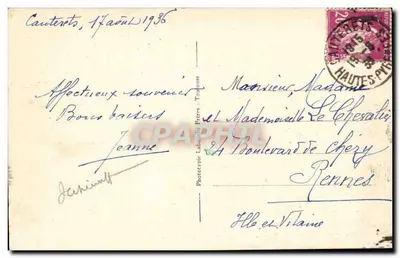 Cauterets, 17 août 1936
Affectueux souvenir
Bons baisers
Jeanne
Monsieur, Madame
et Mademoiselle Le Chevalier
24 Boulevard de Chézy
Rennes
Ille et Vilaine
CAUTERETS
HAUTES-PYR
CPAPHIL
Phototypie